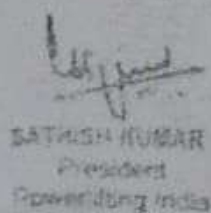 SATHISH KUMAR
President
Powerlifting India